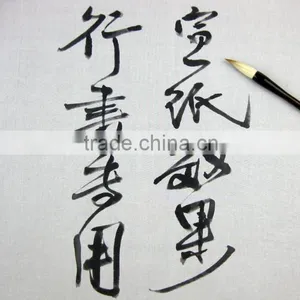 宣纸效果
行书专用
trade.china.cn